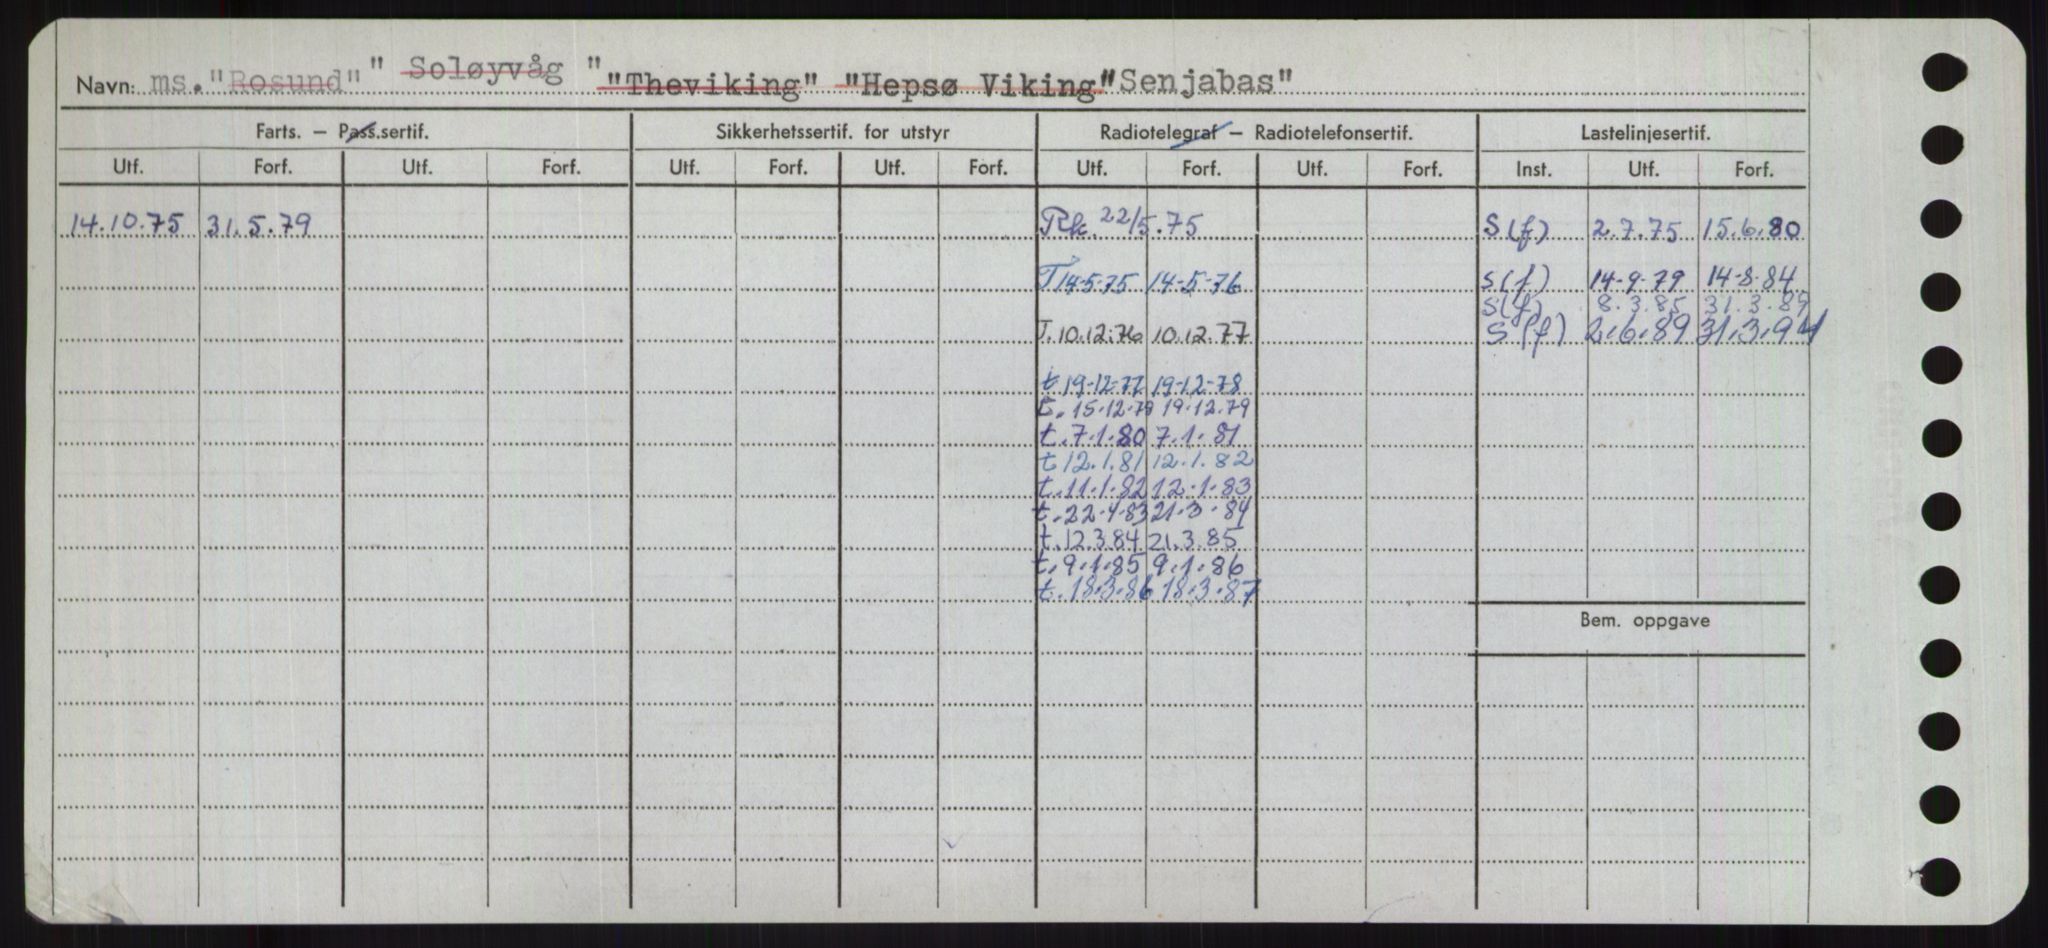 Navn: ms. "Rosund" " Soløyvåg " "Theviking" "Hepsø Viking" "Senjabas"
Farts. — Pass.sertif. Sikkerhetssertif. for utstyr Radiotelegraf — Radiotelefonsertif. Lastelinjesertif.
Utf. Forf. Utf. Forf. Utf. Forf. Utf. Forf. Utf. Forf. Utf. Forf. Inst. Utf. Forf.
14.10.75 31.5.79 Rk. 22/5.75 S(f) 2.7.75 15.6.80
T 14-5-75 14-5-76 S(f) 14-9-79 14-8-84
S(f) 8.3.85 31.3.89
T. 10.12.76 10.12.77 S(f) 2.6.89 31.3.94
t 19-12-77 19-12-78
t. 15.12.78 19.12.79
t. 7.1.80 7.1.81
t 12.1.81 12.1.82
t. 11.1.82 12.1.83
t. 22.4.83 21.3.84
t. 12.3.84 21.3.85
t. 9.1.85 9.1.86
t. 18.3.86 18.3.87
Bem. oppgave